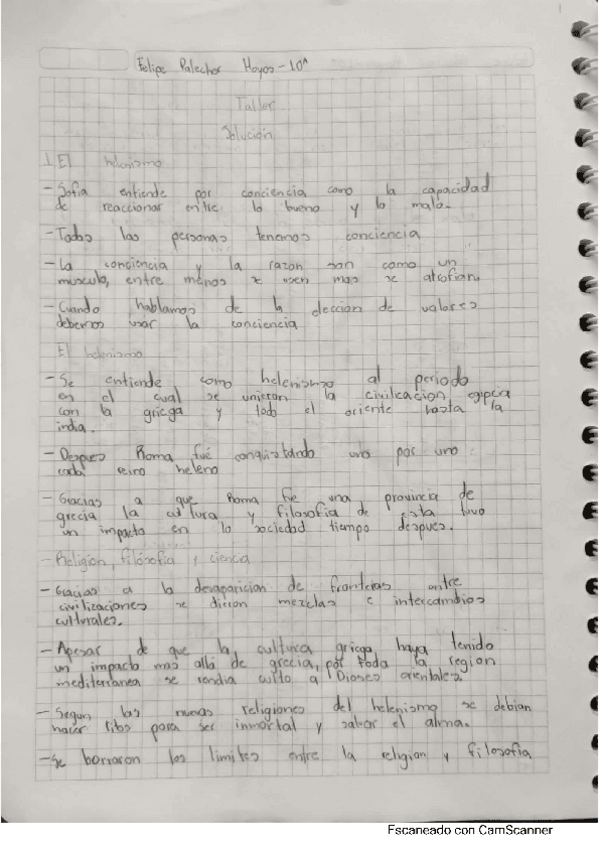 Felipe Palechor Hoyos - 10^
Taller
Solución
1. El helenismo
- Sofia entiende por conciencia como la capacidad
de reaccionar entre lo bueno y lo malo.
- Todas las personas tenemos conciencia
- La conciencia y la razon son como un
musculo, entre menos se usen mas se atrofian.
- Cuando hablamos de la eleccion de valores
debemos usar la conciencia
El helenismo
- Se entiende como helenismo al periodo
en el cual se unieron la civilicacion egipcia
con la griega y todo el oriente hasta la
india.
- Despues Roma fué conquistando uno por uno
cada reino heleno
- Gracias a que Roma fue una provincia de
grecia la cultura y filosofia de esta tuvo
un impacto en la sociedad tiempo despues.
- Religión, filosofia y ciencia
- Gracias a la desaparicion de fronteras entre
civilizaciones se dieron mezclas e intercambios
culturales.
- Apesar de que la cultura griega haya tenido
un impacto mas allá de grecia, por toda la region
mediterranea se rendia culto a Dioses orientales.
- Segun las nuevas religiones del helenismo se debian
hacer ritos para ser inmortal y salvar el alma.
- Se borraron los limites entre la religion y filosofia
Escaneado con CamScanner